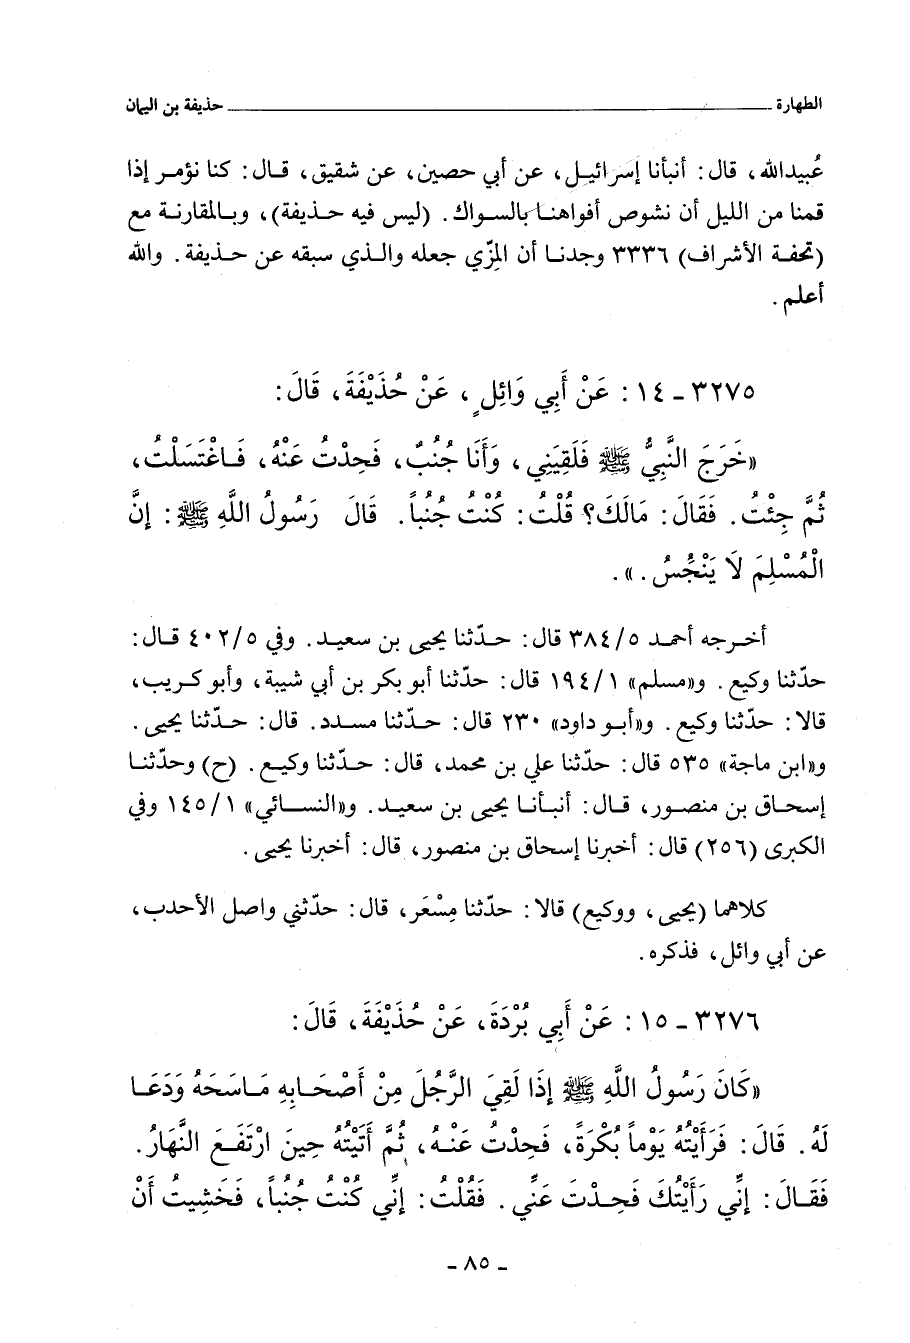 الطهارة ــــــــــــــــــــ حذيفة بن اليمان
عُبيدالله، قال: أنبأنا إسرائيـل، عن أبي حصين، عن شقيق، قـال: كنا نؤمـر إذا
قمنا من الليل أن نشوص أفواهنـا بالسواك. (ليس فيه حـذيفة)، وبـالمقارنـة مع
(تحفـة الأشراف) ٣٣٣٦ وجدنـا أن المِزّي جعله والـذي سبقه عن حـذيفة. والله
أعلم.
٣٢٧٥ ـ ١٤: عَنْ أَبِي وَائِلٍ، عَنْ حُذَيْفَةَ، قَالَ:
«خَرَجَ النَّبِيُّ ﷺ فَلَقِيَنِي، وَأَنَا جُنُبٌ، فَحِدْتُ عَنْهُ، فَـاغْتَسَلْتُ،
ثُمَّ جِئْتُ. فَقَالَ: مَالَكَ؟ قُلْتُ: كُنْتُ جُنُباً. قَالَ رَسُولُ اللَّهِ ﷺ: إِنَّ
الْمُسْلِمَ لَا يَنْجُسُ.».
أخـرجه أحمـد ٣٨٤/٥ قال: حـدّثنا يحيى بن سعيـد. وفي ٤٠٢/٥ قـال:
حدّثنا وكيع. و«مسلم» ١٩٤/١ قال: حدّثنا أبو بكر بن أبي شيبة، وأبو كريب،
قالا: حدّثنا وكيع. و«أبـو داود» ٢٣٠ قال: حـدّثنا مسـدد. قال: حـدّثنا يحيى.
و«ابن ماجة» ٥٣٥ قال: حدّثنا علي بن محمد، قال: حـدّثنا وكيـع. (ح) وحدّثنـا
إسحـاق بن منصـور، قـال: أنبـأنـا يحيى بن سعيـد. و«النسـائي» ١٤٥/١ وفي
الكبرى (٢٥٦) قال: أخبرنا إسحاق بن منصور، قال: أخبرنا يحيى.
كلاهما (يحيى، ووكيع) قالا: حدّثنا مِسْعَر، قال: حدّثني واصل الأحدب،
عن أبي وائل، فذكره.
٣٢٧٦ ـ ١٥: عَنْ أَبِي بُرْدَةَ، عَنْ حُذَيْفَةَ، قَالَ:
«كَانَ رَسُولُ اللَّهِ ﷺ إِذَا لَقِيَ الرَّجُلَ مِنْ أَصْحَـابِهِ مَـاسَحَهُ وَدَعَـا
لَهُ. قَالَ: فَرَأَيْتُهُ يَوْماً بُكْرَةً، فَحِدْتُ عَنْـهُ، ثُمَّ أَتَيْتُهُ حِينَ ارْتَفَـعَ النَّهَارُ.
فَقَـالَ: إِنِّي رَأَيْتُكَ فَحِـدْتَ عَنِّي. فَقُلْتُ: إِنِّي كُنْتُ جُنُباً، فَخَشِيتُ أَنْ
ـ ٨٥ ـ